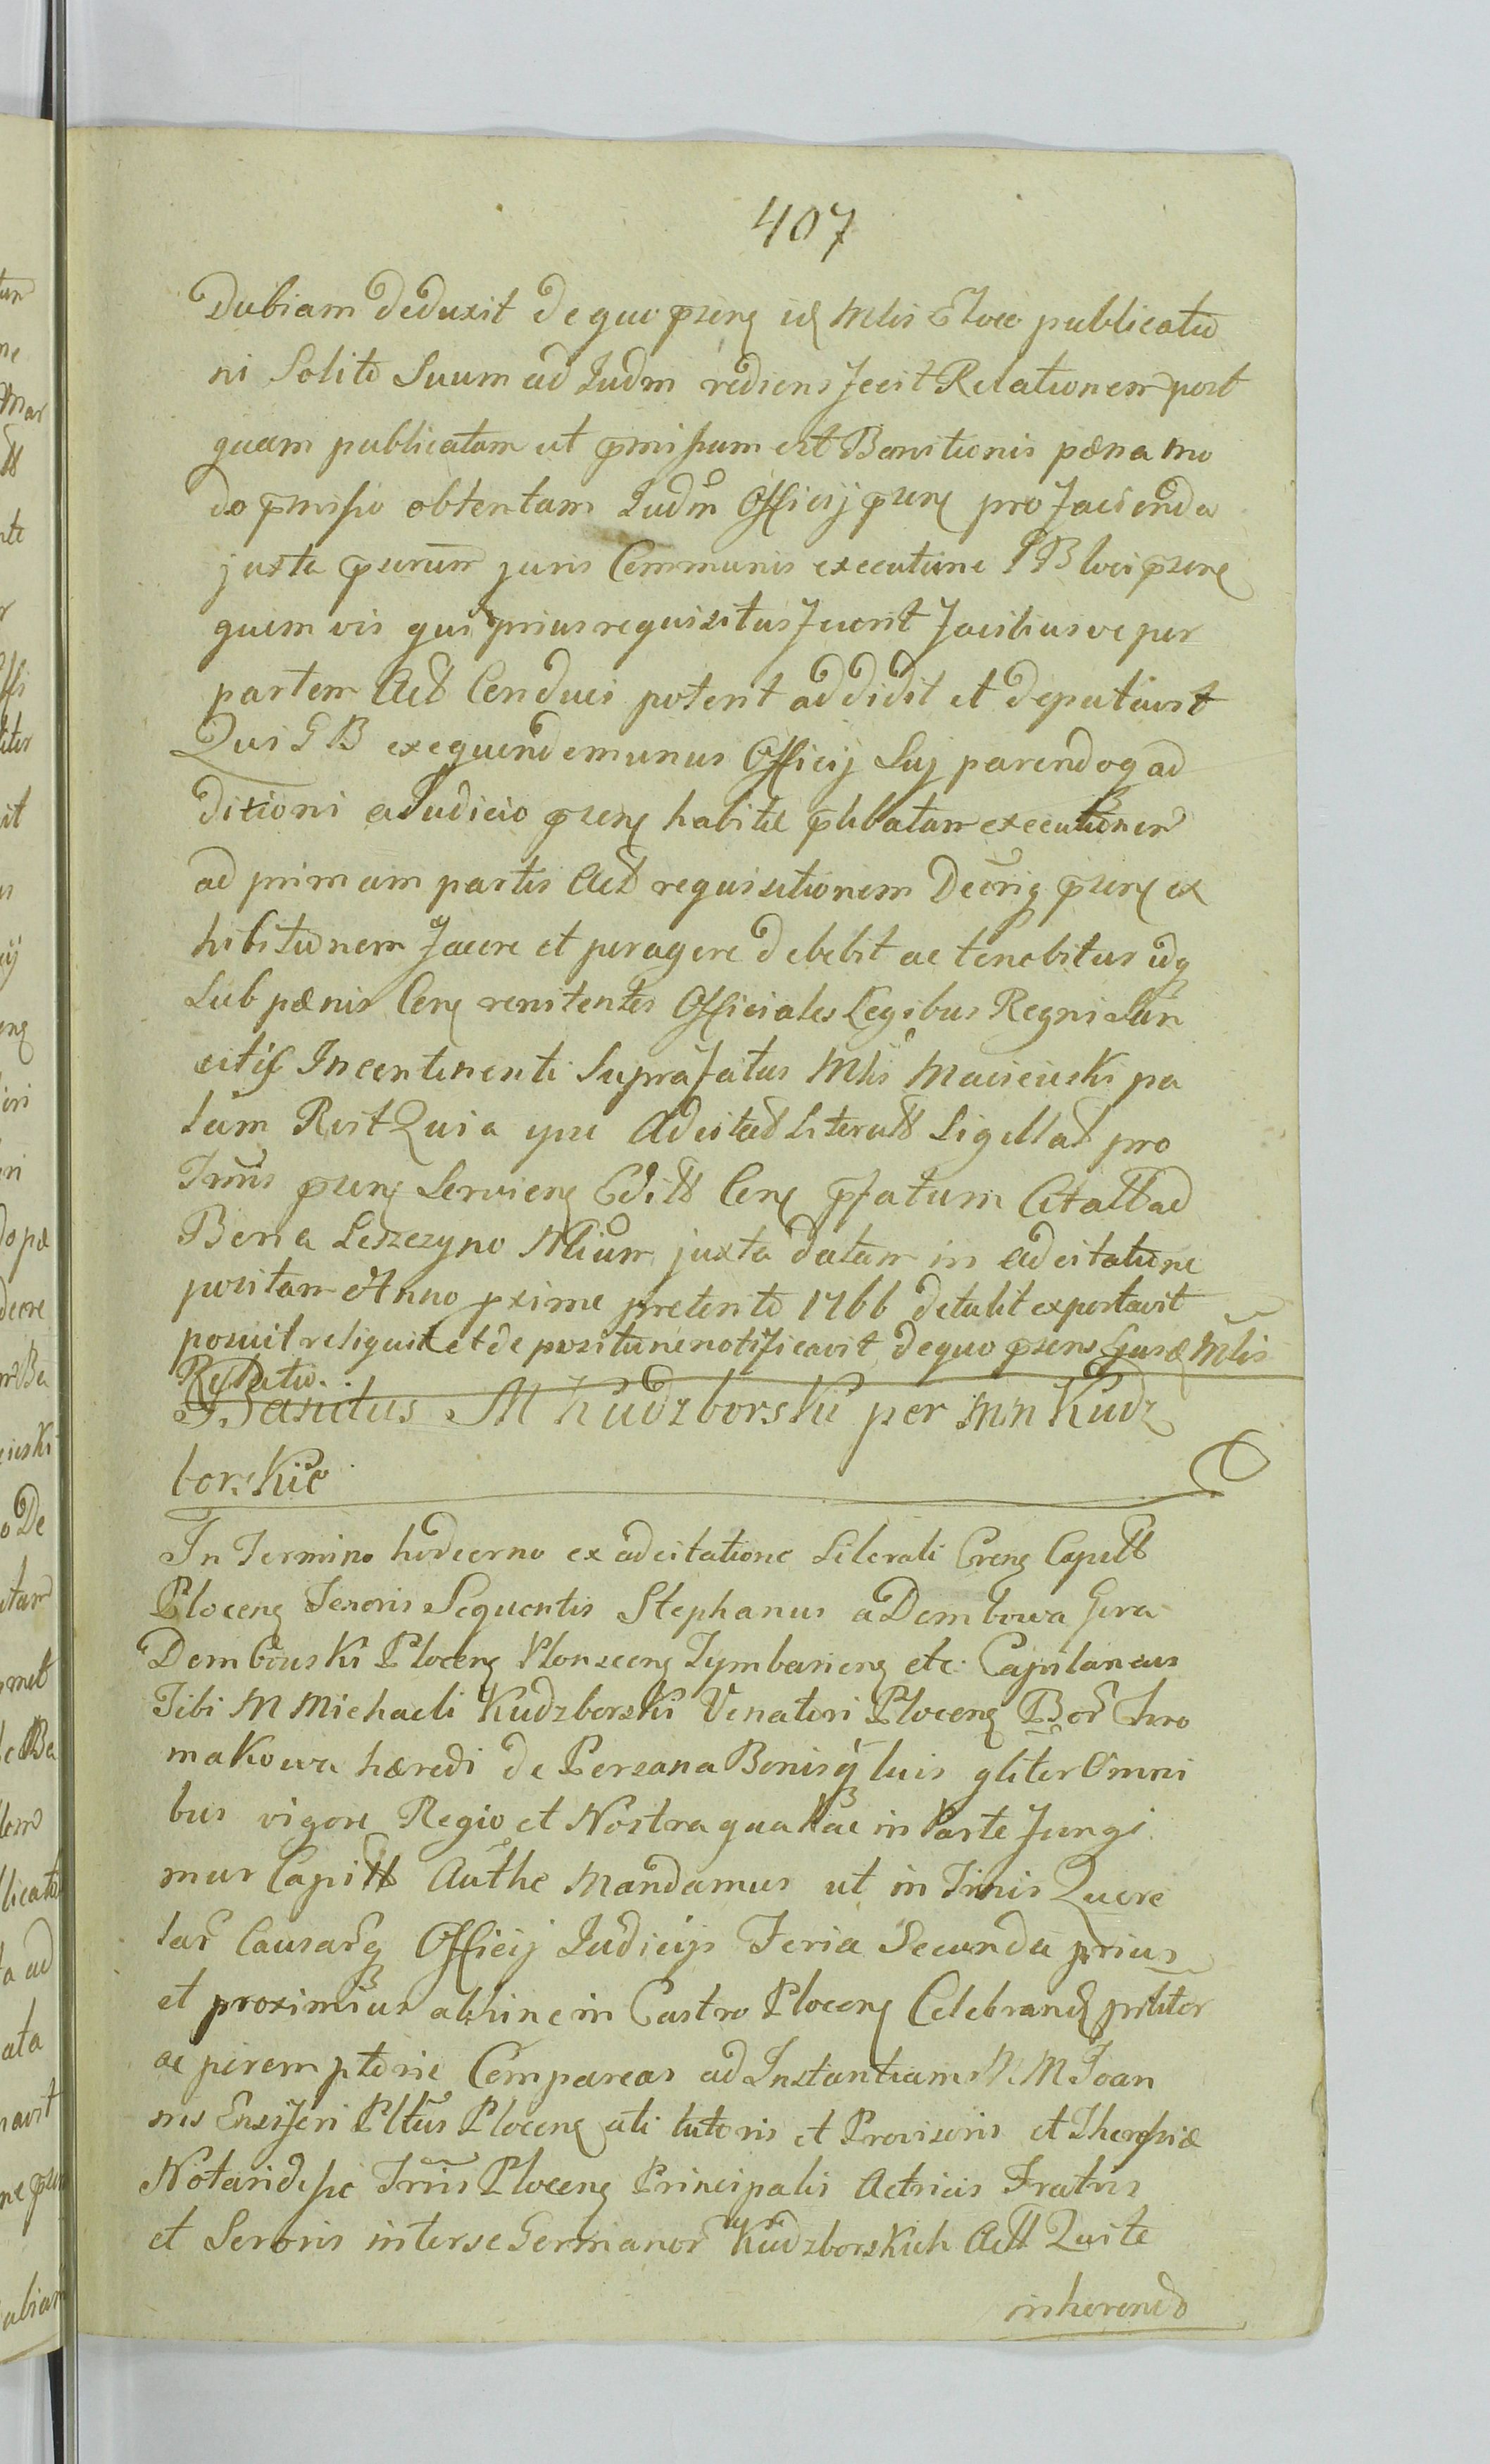 407
Dubiam deduxit de quo prens id Mlis E loco publicatio
ni Solito Suum ad Judm rediens fecit Relationem post
quam publicatam ut pmissum est Banitionis pæna mo
do pmisso obtentam Judm Officij prens pro facienda
juxta prens juris Communis executione GB loci prens
quem vis qui prius requisitus fuerit facilius ve per
partem Act Conduci poterit addidit et deputavit
Qui GB exequendo munus Officij Suj parendoq ad
ditioni a Judicio prens habitæ plibatam executionem
ad primam partis Act requisitionem Decriq prens ex
hibitionem facere et peragere debebit ac tenebitur idq
Sub pænis Cong renitentes Officiales Legibus Regni San
citis Incontinenti Suprafatus Mlis Macieiuski pa
lam Rvit Quia ipse Adcitat Literatt Sigillat pro
Trmis prens Serviens Editt Cong pfatum Citatt ad
Bona Leszczyno Mlium juxta datam in adcitatione
positam Anno pxime preterito 1766 detulit exportavit
posuit reliquit et de positione notificavit de quo prens Ejusd Mlis
Relatio.
Banitus M Kudzborski per MM Kudz
borskie
In Termino hodierno ex adcitatione Literali Crens Capitt
Plocens Tenoris Sequentis Stephanus a Dembowa Gora
Dembouski Plocens Plonscens Tymbariens etc. Capitaneus
Tibi M Michaeli Kudzborski Venatori Plocens Bor Chro
makowa hæredi de Persona Bonisq tuis gliter Omni
bus vigore Regio et Nostra qua hac in Parte fungi
mur Capitt Authe Mandamus ut in Trmis Quere
lar Causarq Officij Judicijs Feria Secunda prius
et proximius abhinc in Castro Plocens Celebrand pnliter
ac peremptorie Compareas ad Instantiam MM Joan
nis Ensiferi Pltus Plocens uti tutoris et Provisoris et Theressiæ
Notaridissæ Trris Plocens Principalis Actricis Fratris
et Sororis inter se Germanor Kudzborskich Actt Qui te
inherendo